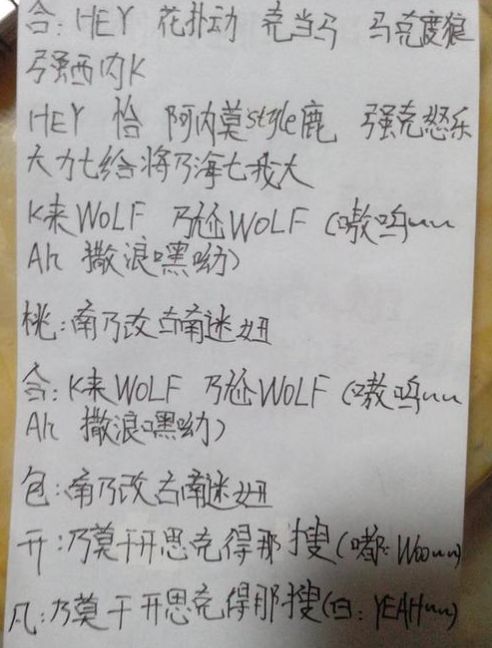 合: HEY 花扑动 克当马 马克度狼
弓强西内K
HEY 恰 阿内莫style鹿 强克怒乐
大力七给将乃海七我大
K来WOLF 乃尬WOLF (嗷呜~~
Ah 撒浪嘿呦)
桃: 南乃改古南迷妞
合: K来WOLF 乃尬WOLF (嗷呜~~
Ah 撒浪嘿呦)
包: 南乃改古南迷妞
开: 乃莫干开思克得那搜(嘟: Woo~~)
凡: 乃莫干开思克得那搜(白: YEAH~~)